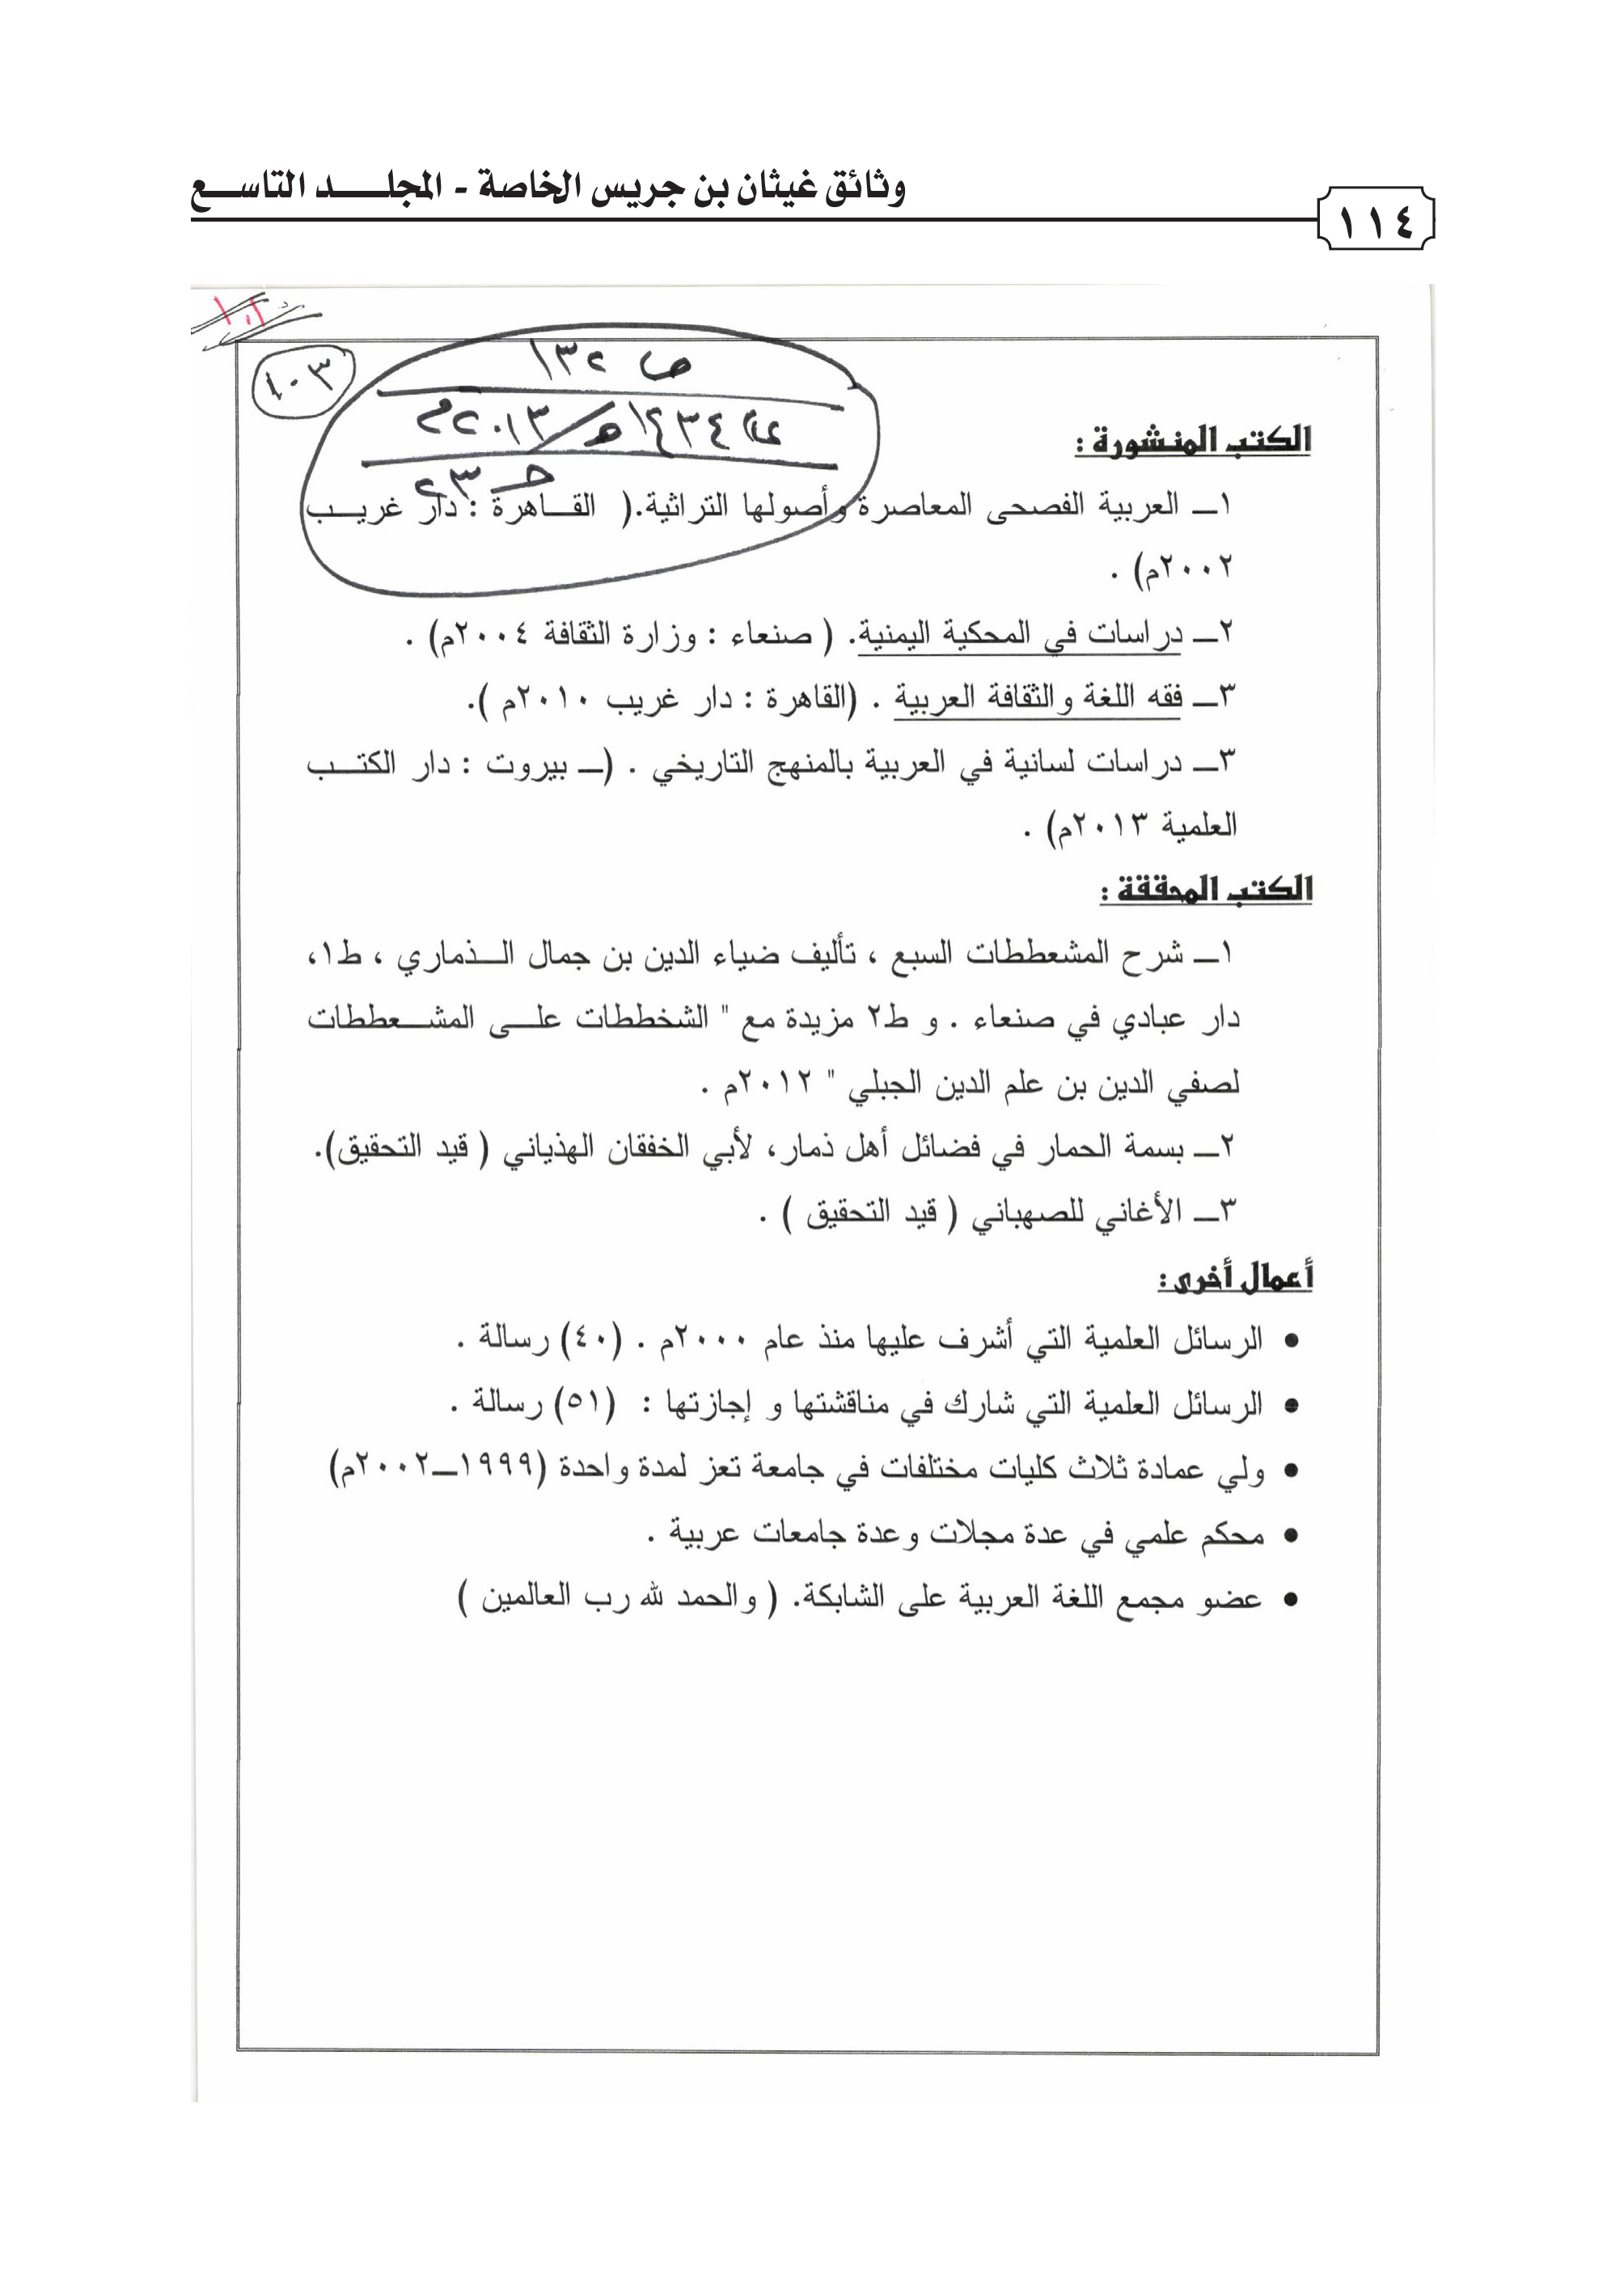 وثائق غيثان بن جريس الخاصة - المجلـــــد التاســـع
١١٤
١٠١
١٠٣
ص ١٣٢
١٤٣٤هـ/٢٠١٣م
جـ ٢٣
الكتب المنشورة :
١ــ العربية الفصحى المعاصرة وأصولها التراثية.( القــاهرة : دار غريــب
٢٠٠٢م) .
٢ــ دراسات في المحكية اليمنية. ( صنعاء : وزارة الثقافة ٢٠٠٤م) .
٣ــ فقه اللغة والثقافة العربية . (القاهرة : دار غريب ٢٠١٠م ).
٣ــ دراسات لسانية في العربية بالمنهج التاريخي . (ــ بيروت : دار الكتــب
العلمية ٢٠١٣م) .
الكتب المحققة :
١ــ شرح المشعططات السبع ، تأليف ضياء الدين بن جمال الــذماري ، ط١،
دار عبادي في صنعاء . و ط٢ مزيدة مع " الشخططات علــى المشــعططات
لصفي الدين بن علم الدين الجبلي " ٢٠١٢م .
٢ــ بسمة الحمار في فضائل أهل ذمار، لأبي الخفقان الهذياني ( قيد التحقيق).
٣ــ الأغاني للصهباني ( قيد التحقيق ) .
أعمال أخرى :
• الرسائل العلمية التي أشرف عليها منذ عام ٢٠٠٠م . (٤٠) رسالة .
• الرسائل العلمية التي شارك في مناقشتها و إجازتها : (٥١) رسالة .
• ولي عمادة ثلاث كليات مختلفات في جامعة تعز لمدة واحدة (١٩٩٩ــ٢٠٠٢م)
• محكم علمي في عدة مجلات وعدة جامعات عربية .
• عضو مجمع اللغة العربية على الشابكة. ( والحمد لله رب العالمين )